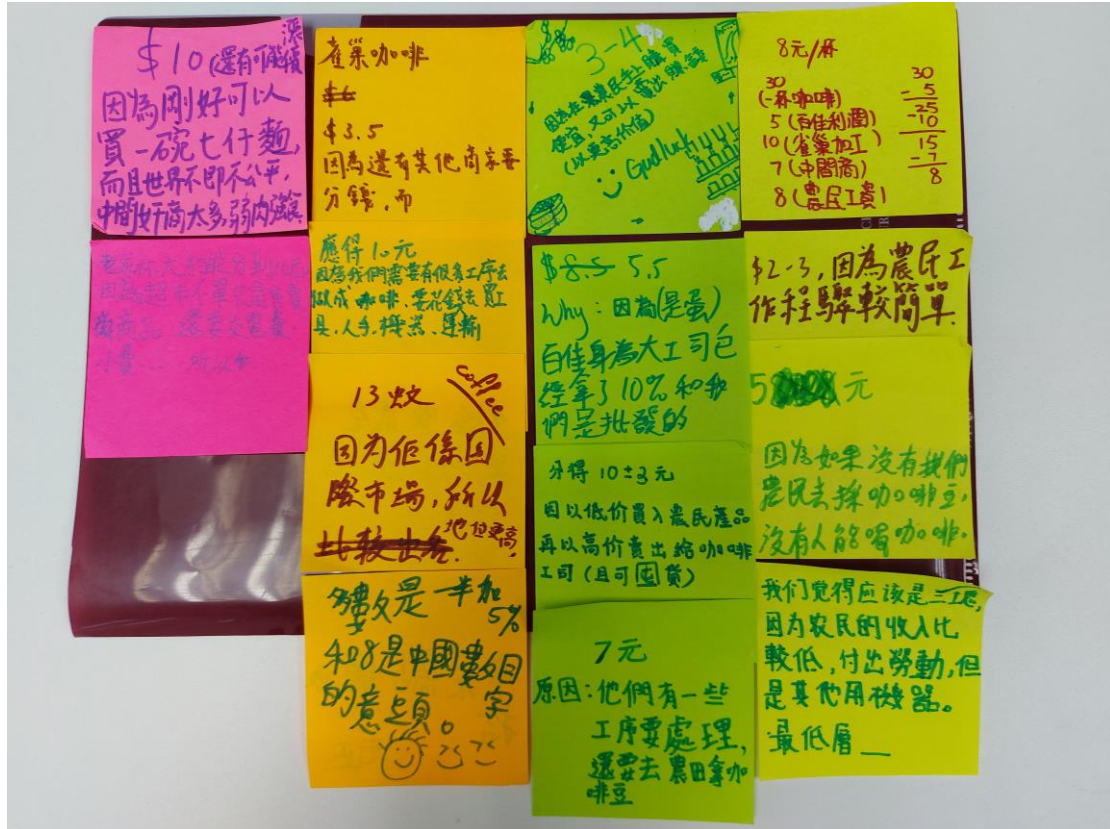 $10 (還有可能被
深
因為剛好可以
買一碗七仔麵,
而且世界不即不公平,
中間奸商太多,弱肉強食.
雀巢咖啡
$6
$3.5
因為還有其他商家要
分錢,而
應得10元
因為我們需要有很多工序去
做成咖啡,要花錢去買工
具,人手,機器、運輸
coffee
13蚊
因为佢係国
際市場,所以
比較出名. 地位更高.
多數是一半加
5%
和8是中國數目
字
的意頭。
3-4
因為在農民手上購買
便宜,又可以賣出賺錢
(以更高价值)
Gudluck
$8.5 5.5
Why:因為(是蛋)
百佳身為大工司已
經拿了10%和我
們是批發的
分得10±3元
因以低价買入農民產品
再以高价賣出給咖啡
工司(且可囤貨)
7元
原因:他們有一些
工序要處理,
還要去農田拿咖
啡豆
8元/杯
30
(一杯咖啡)
5(百佳利潤)
10(雀巢加工)
7(中間商)
8(農民工費)
30
- 5
25
-10
15
- 7
8
$2-3,因為農民工
作程驟較簡單.
5 元
因為如果沒有我們
農民去採咖啡豆,
沒有人能喝咖啡.
我们觉得应该是三元,
因为农民的收入比
較低,付出勞動,但
是其他用機器。
最低層__